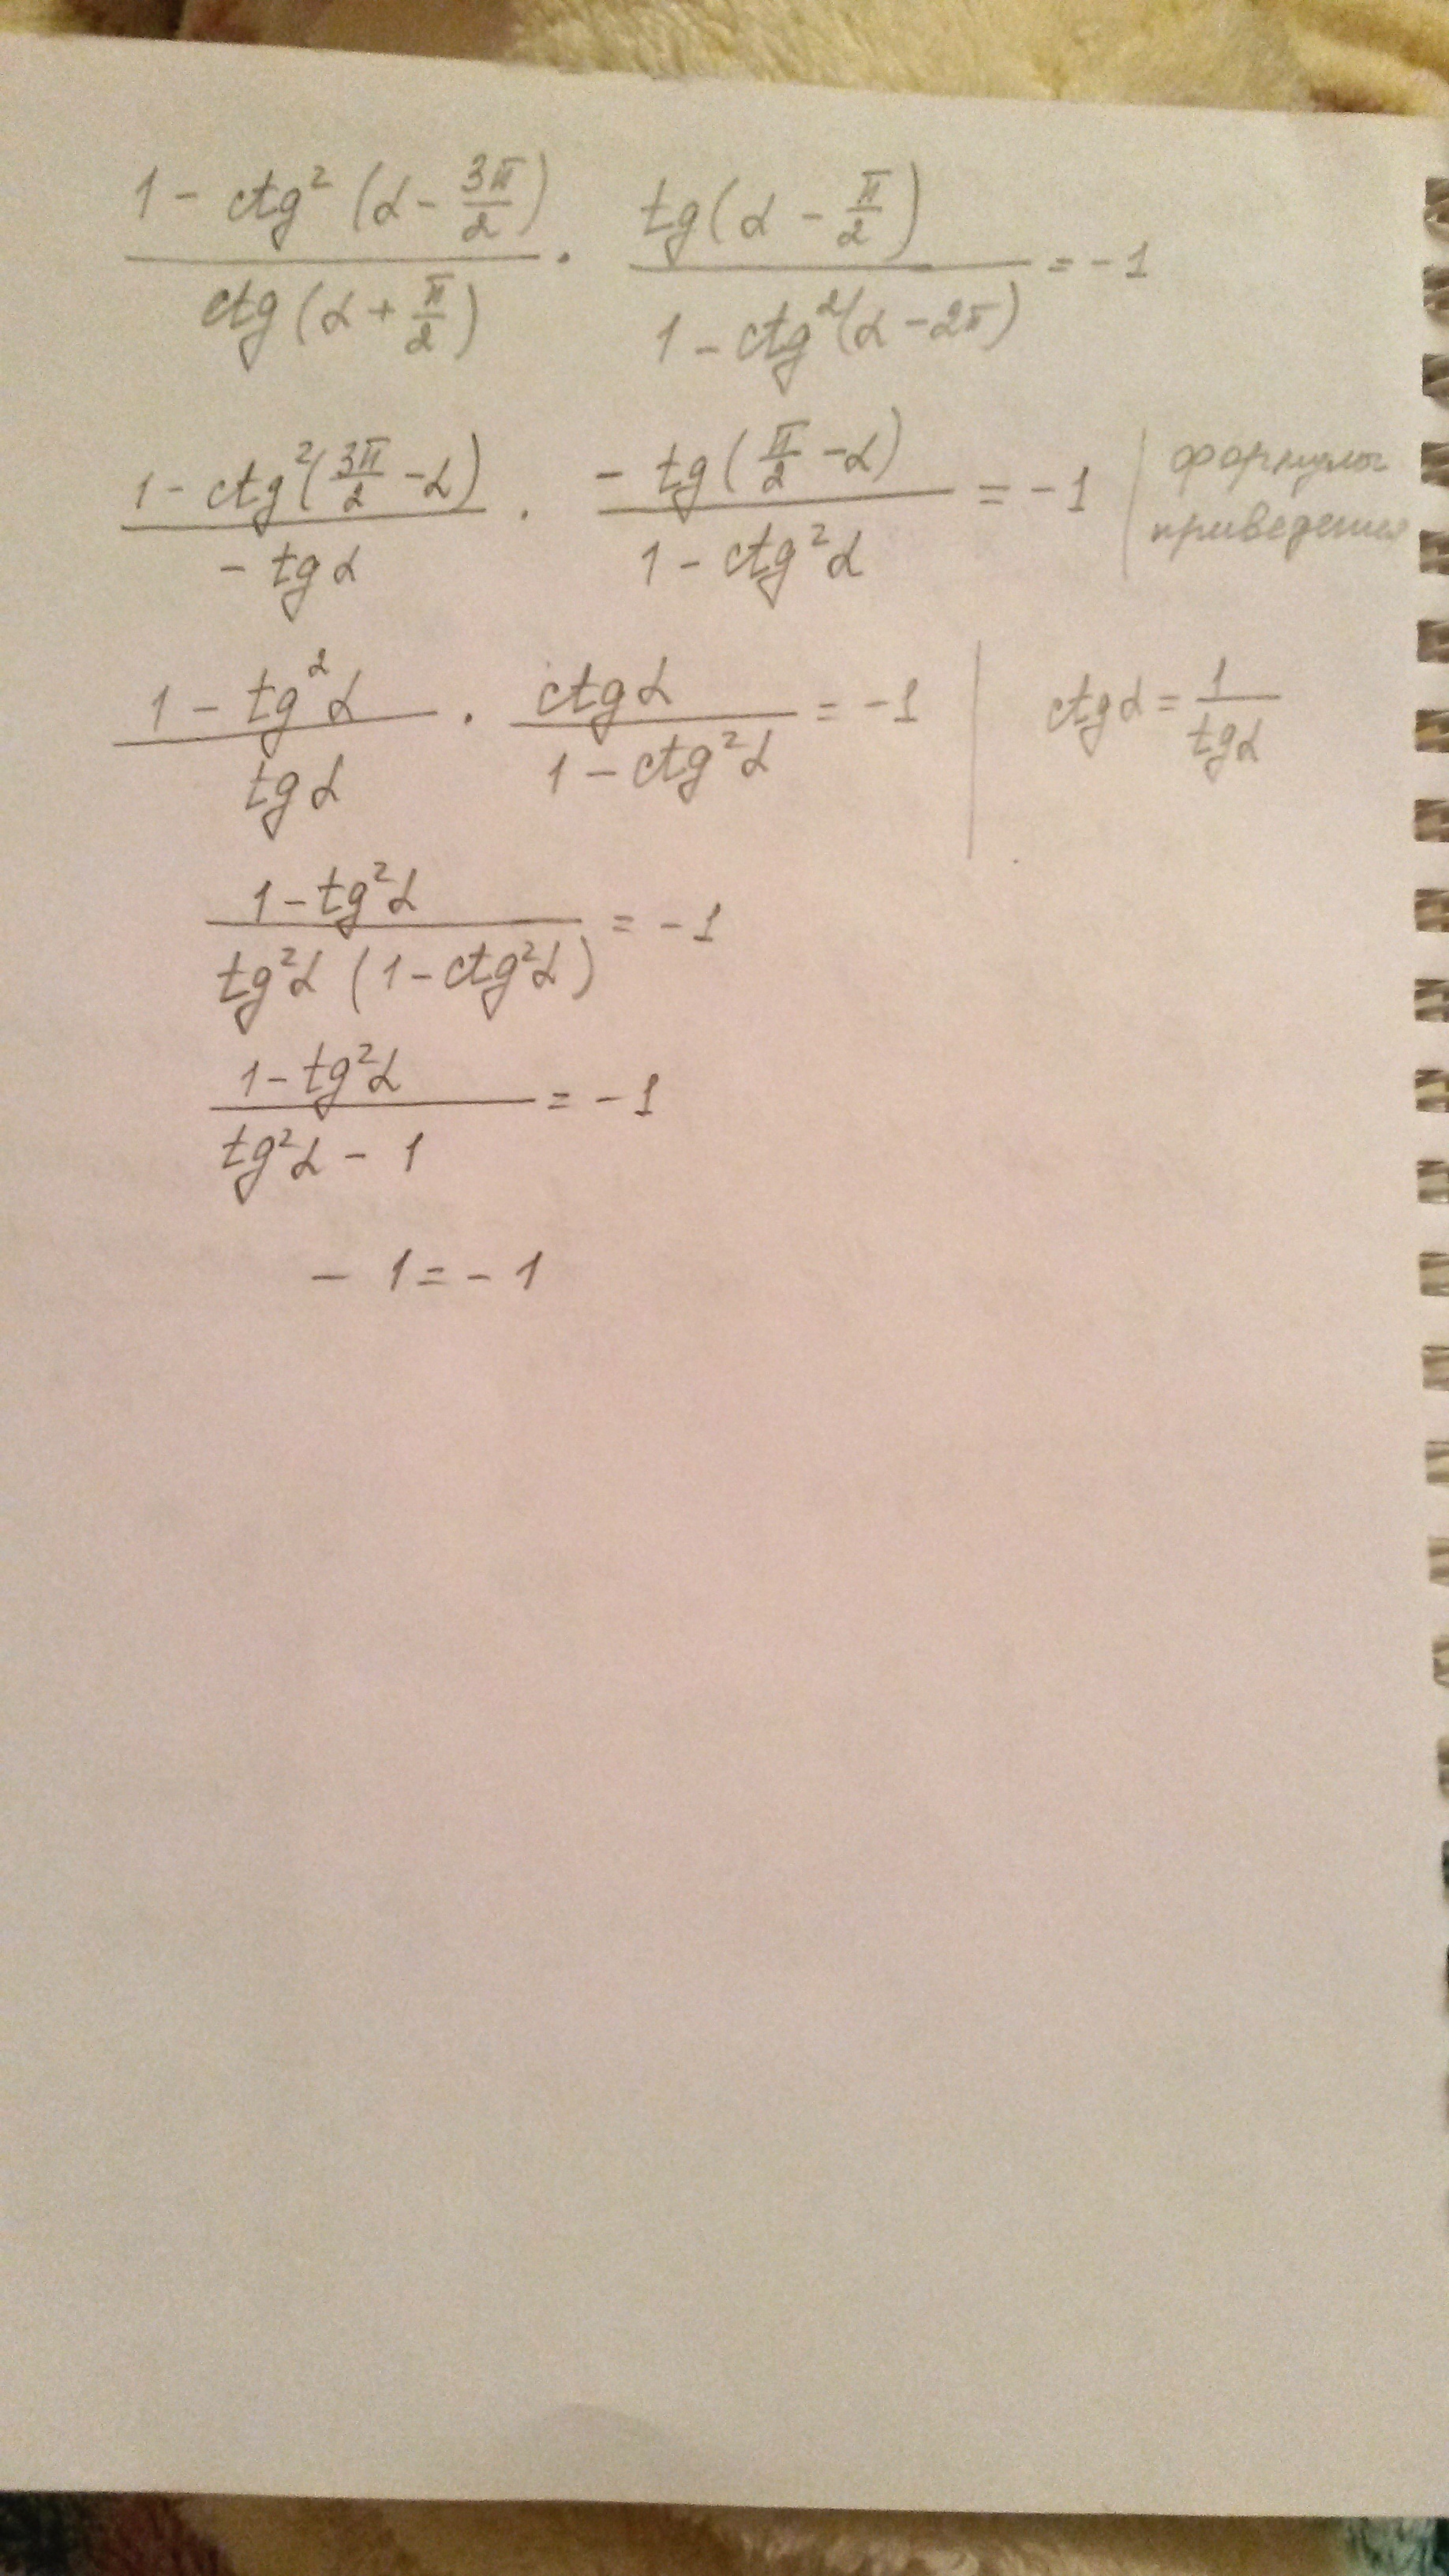 (1 - ctg²(α - 3π/2)) / ctg(α + π/2) · tg(α - π/2) / (1 - ctg²(α - 2π)) = -1
(1 - ctg²(3π/2 - α)) / (- tgα) · (- tg(π/2 - α)) / (1 - ctg²α) = -1 | формулы приведения
(1 - tg²α) / tgα · ctgα / (1 - ctg²α) = -1 | ctgα = 1/tgα
(1 - tg²α) / (tg²α (1 - ctg²α)) = -1
(1 - tg²α) / (tg²α - 1) = -1
- 1 = - 1